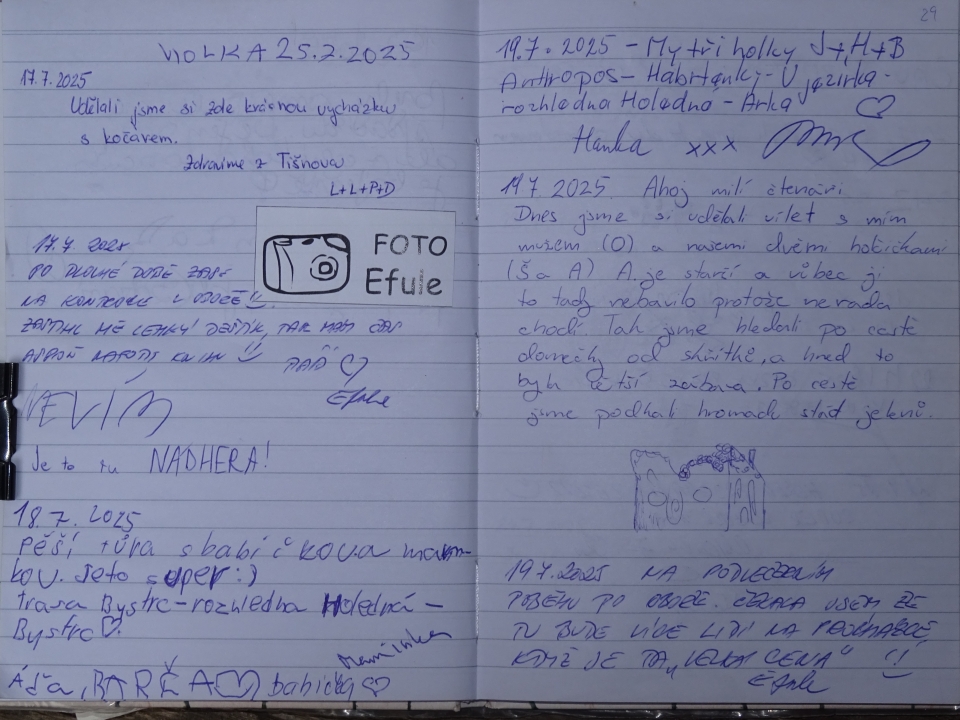 29
VIOLKA 25.2.2025
17.7.2025
Udělali jsme si zde krásnou vycházku
s kočárem.
Zdravíme z Tišnova
L+L+P+D
FOTO
Efule
17.7. 2025
PO DLOUHÉ DOBĚ ZASE
NA KONTROLE V OBOŘE
ZASTIHL MĚ LEHKÝ DEŠTÍK, TAK MÁM ČAS
ASPOŇ NAFOTIT KNIHU
PAPÍ
Efule
NEVÍM
Je to tu NÁDHERA!
18.7. 2025
Pěší túra s babičkova
kov. Jeto super :)
trasa Bystrc-rozhledna Holedná -
Bystrc
Maminka
Áďa, BARČA babička
19.7.2025 - My tři holky J+H+B
Anthropos - Habřinky - U jezírka -
rozhledna Holedná - Arka
Hanka xxx
19.7.2025. Ahoj milí čtenáři.
Dnes jsme si udělali vílet s mím
mužem (O) a našemi dvěmi holčičkami
(Š a A) A. je starší a vůbec jí
to tady nebavilo protože nerada
chodí. Tak jsme hledali po cestě
domečky od skřítků, a hned to
byla větší zábava. Po cestě
jsme potkali hromadu stád jelenů.
19.7.2025 NA
POBĚHU PO OBOŘE. ČEKALA JSEM ŽE
TU BUDE VÍCE LIDÍ NA PROCHÁZCE,
KDYŽ JE TA "VELKÁ CENA"
Efule